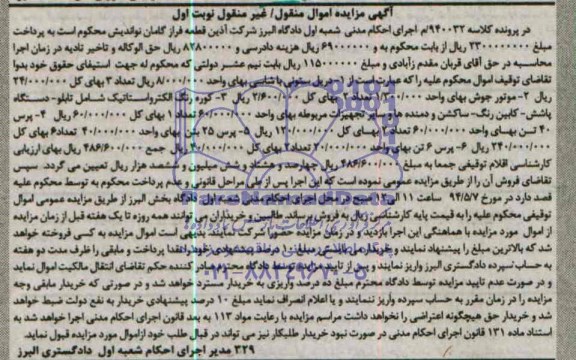 آگهی مزایده اموال منقول/ غیر منقول نوبت اول
در پرونده کلاسه ۹۴۰۰۳۲/م اجرای احکام مدنی شعبه اول دادگاه البرز شرکت آذین قطعه فراز گامان نواندیش محکوم است به پرداخت
مبلغ ۲۳۰۰۰۰۰۰۰۰ ریال از بابت محکوم به و ۶۹۰۰۰۰۰۰ ریال هزینه دادرسی و ۸۲۸۰۰۰۰۰ ریال حق الوکاله و تاخیر تادیه در زمان اجرا
محاسبه در حق آقای قربان مقدم زآبادی و مبلغ ۱۱۵۰۰۰۰۰۰ ریال بابت نیم عشر دولتی که محکوم له جهت استیفای حقوق خود بدوا
تقاضای توقیف اموال محکوم علیه را که عبارت است از ۱- دریل ستونی با شاسی بهای واحد ۸/۰۰۰/۰۰۰ ریال تعداد ۳ بهای کل ۲۴/۰۰۰/۰۰۰
ریال ۲- موتور جوش بهای واحد تعداد ۲ بهای کل ۲/۶۰۰/۰۰۰ ریال ۳- کوره رنگ الکترواستاتیک شامل تابلو- دستگاه
پاشش- کابین رنگ- ساکشن و دمنده ها و سایر تجهیزات مربوطه بهای واحد ۶۰/۰۰۰/۰۰۰ تعداد ۱ بهای کل ۶۰/۰۰۰/۰۰۰ ریال ۴- پرس
۴۰ تن بهای واحد ۶۰/۰۰۰/۰۰۰ تعداد ۲ بهای کل ۱۲۰/۰۰۰/۰۰۰ ریال ۵- پرس ۲۵ تن بهای واحد ۴۰/۰۰۰/۰۰۰ تعداد ۶ بهای کل
۲۴۰/۰۰۰/۰۰۰ ریال ۶- پرس ۶ تن بهای واحد ۲۰/۰۰۰/۰۰۰ تعداد ۲ بهای کل ۴۰/۰۰۰/۰۰۰ ریال جمع ۴۸۶/۶۰۰/۰۰۰ ریال بهای ارزیابی
کارشناسی اقلام توقیفی جمعا به مبلغ ۴۸۶/۶۰۰/۰۰۰ ریال چهارصد و هشتاد و شش میلیون و ششصد هزار ریال تعیین می گردد. سپس
تقاضای فروش آن را از طریق مزایده عمومی نموده است که این اجرا پس از طی مراحل قانونی و عدم پرداخت محکوم به توسط محکوم علیه
قصد دارد در مورخ ۹۴/۵/۷ ساعت ۱۱ الی ۱۲ صبح در محل اجرای احکام مدنی شعبه اول دادگاه بخش البرز از طریق مزایده عمومی اموال
توقیفی محکوم علیه را به قیمت پایه کارشناسی به فروش برساند. طالبین و خریداران می توانند همه روزه تا یک هفته قبل از زمان مزایده
از اموال مورد مزایده با هماهنگی این اجرا بازدید و در زمان مزایده حضور شرکت نمایند. بدیهی است اموال مزایده به کسی فروخته خواهد
شد که بالاترین مبلغ را پیشنهاد نمایند و خریدار می بایستی مبلغ ۱۰ درصد پیشنهادی خود را نقدا پرداخت و مابقی را ظرف مدت دو هفته
به حساب سپرده دادگستری البرز واریز نمایند و پس از تایید مزایده توسط دادگاه محترم صادرکننده حکم تقاضای انتقال مالکیت اموال نماید
و در صورت عدم تایید مزایده توسط دادگاه محترم مبلغ ده درصد واریزی به خریدار مسترد خواهد شد و در صورتی که خریدار مابقی وجه
مزایده را در زمان مقرر به حساب سپرده واریز ننمایند و یا اعلام انصراف نماید مبلغ ۱۰ درصد پیشنهادی خریدار به نفع دولت ضبط خواهد
شد و خریدار حق هیچگونه اعتراضی را نخواهد داشت مراسم مزایده با رعایت مواد ۱۱۳ به بعد قانون اجرای احکام مدنی اجرا خواهد شد به
استناد ماده ۱۳۱ قانون اجرای احکام مدنی در صورت نبود خریدار طلبکار نیز می تواند در قبال طلب خود ازاموال مورد مزایده قبول نماید.
۳۲۹ مدیر اجرای احکام شعبه اول دادگستری البرز